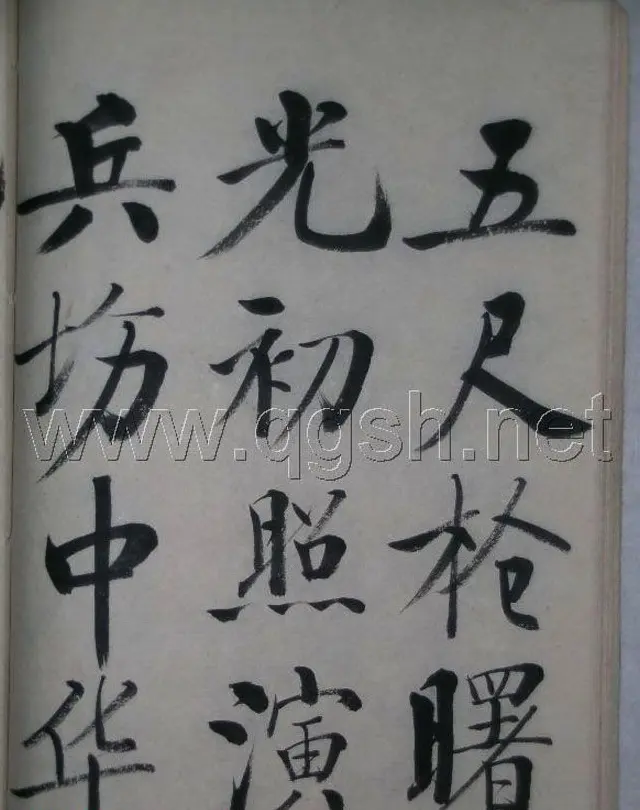 五尺枪曙
光初照演
兵坊中华
www.qgsh.net